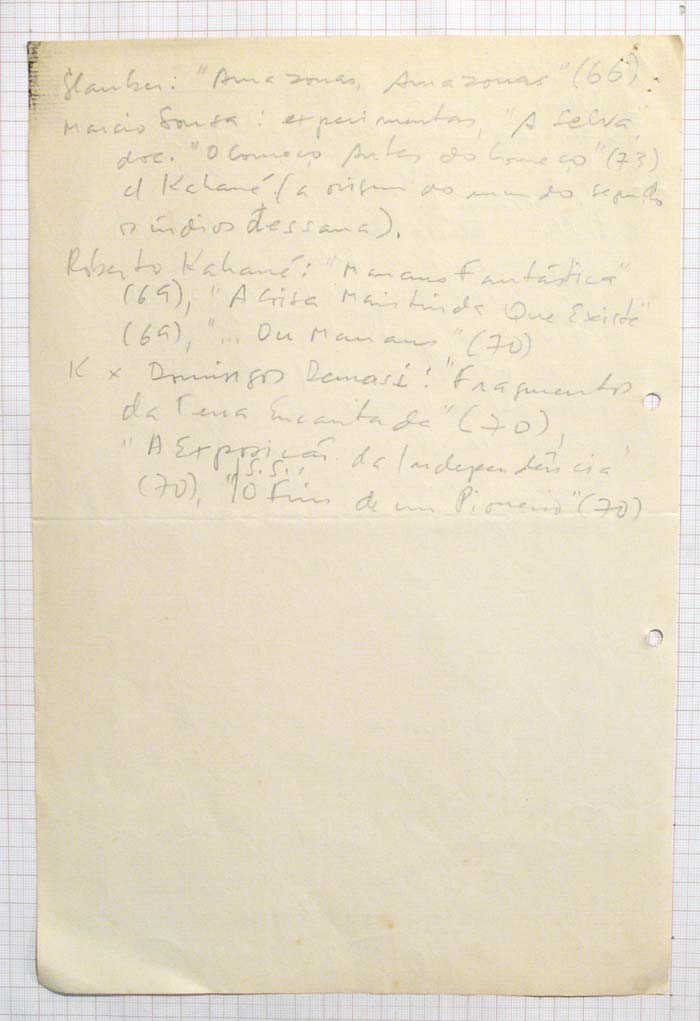 Glauber: "Amazonas, Amazonas" (66)
Marcio Sousa: experimentas, "A Selva",
doc. "O Começo Antes do Começo" (73)
c/ Kahané (a origem do mundo segundo
os índios dessana).
Roberto Kahané: "Manaus Fantástica"
(69), "A Coisa Mais Linda Que Existe"
(69), "... Ou Manaus" (70)
K x Domingos Demasi: "Fragmentos
da Terra Encantada" (70),
"A Exposição da Independência"
(70), "O Fim de um Pioneiro" (70)